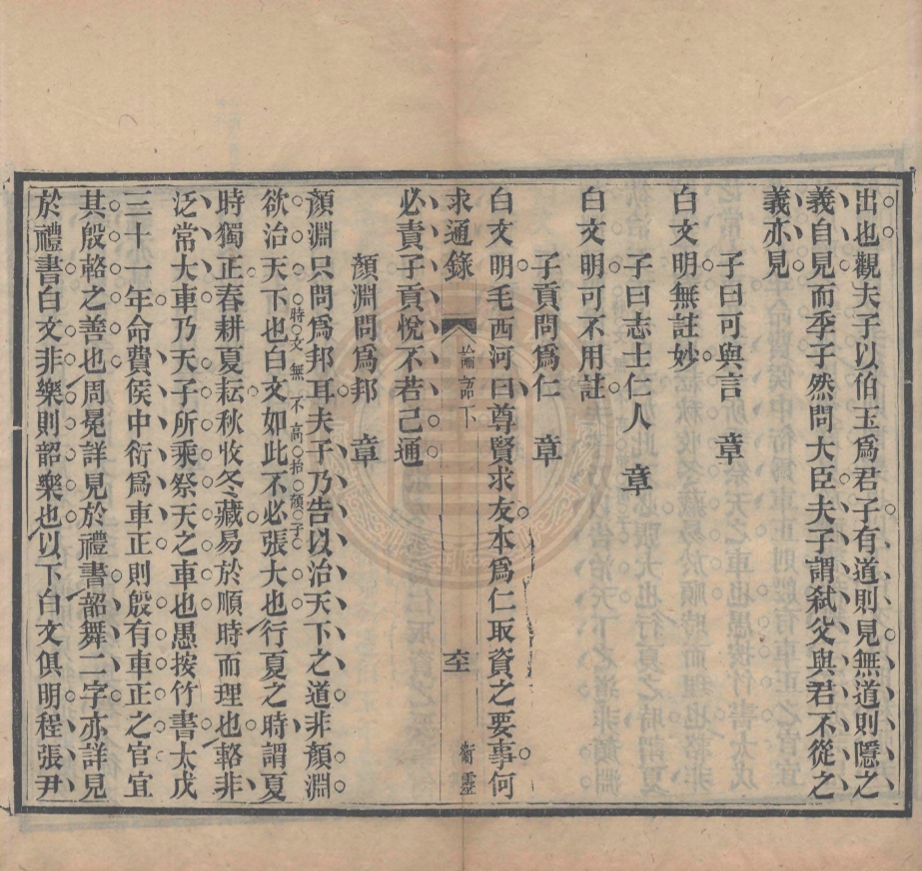 出也觀夫子以伯玉爲君子有道則見無道則隱之
義自見而季子然問大臣夫子謂弑父與君不從之
義亦見
子曰可與言 章
白文明無註妙
子曰志士仁人 章
白文明可不用註
子貢問爲仁 章
白文明毛西河曰尊賢求友本爲仁取資之要事何
求通錄 論語下 衛靈
必責子貢悅不若己通
顏淵問爲邦 章
顏淵只問爲邦耳夫子乃告以治天下之道非顏淵
欲治天下也白文如此不必張大也行夏之時謂夏
時文無不高抬顏子
時獨正春耕夏耘秋收冬藏易於順時而理也輅非
泛常大車乃天子所乘祭天之車也愚按竹書太戊
三十一年命費侯中衍爲車正則殷有車正之官宜
其殷輅之善也周冕詳見於禮書韶舞二字亦詳見
於禮書白文非樂則韶樂也以下白文俱明程張尹